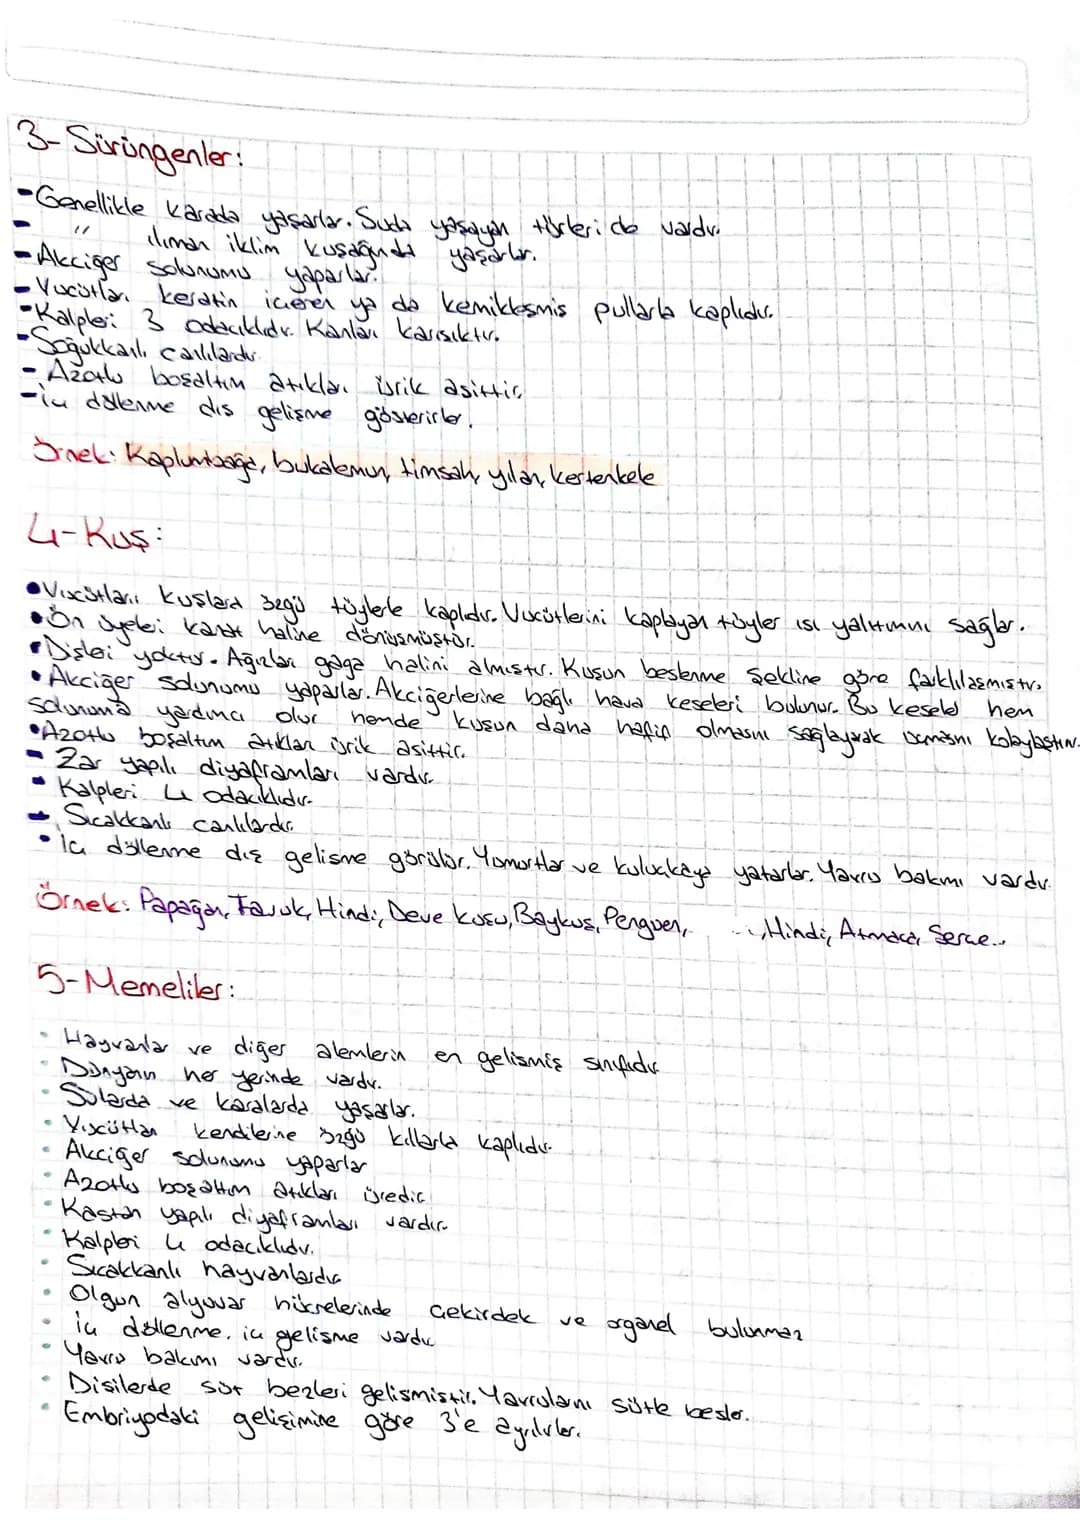 3- Sürüngenler:
- Genellikle karada yaşarlar. Suda yaşayan türleri de vardır.
- " ılıman iklim kuşağında yaşarlar.
- Akciğer solunumu yaparlar.
- Vücutları keratin içeren ya da kemikleşmiş pullarla kaplıdır.
- Kalpleri 3 odacıklıdır. Kanları karışıktır.
- Soğukkanlı canlılardır.
- Azotlu boşaltım atıkları ürik asittir.
- iç döllenme dış gelişme gösterirler.
Örnek: Kaplumbağa, bukalemun, timsah, yılan, kertenkele
4-Kuş:
• Vücütları kuşlara özgü tüylerle kaplıdır. Vücütlerini kaplayan tüyler ısı yalıtımını sağlar.
• Ön üyeleri kanat haline dönüşmüştür.
• Dişleri yoktur. Ağızları gaga halini almıştır. Kuşun beslenme şekline göre farklılaşmıştır.
• Akciğer solunumu yaparlar. Akciğerlerine bağlı hava keseleri bulunur. Bu keseler hem
solunuma yardımcı olur hemde kuşun daha hafif olmasını sağlayarak uçmasını kolaylaştırır.
• Azotlu boşaltım atıkları ürik asittir.
- Zar yapılı diyaframları vardır.
• Kalpleri 4 odacıklıdır.
- Sıcakkanlı canlılardır.
• İç döllenme dış gelişme görülür. Yumurtlar ve kuluçkaya yatarlar. Yavru bakımı vardır.
Örnek: Papağan, Tavuk, Hindi, Deve kuşu, Baykuş, Penguen, Hindi, Atmaca, Serçe..
5-Memeliler:
• Hayvanlar ve diğer alemlerin en gelişmiş sınıfıdır
• Dünyanın her yerinde vardır.
• Sularda ve karalarda yaşarlar.
• Vücütları kendilerine özgü kıllarla kaplıdır.
• Akciğer solunumu yaparlar
• Azotlu boşaltım atıkları üredir.
• Kastan yapılı diyaframları vardır.
• Kalpleri 4 odacıklıdır.
• Sıcakkanlı hayvanlardır
• Olgun alyuvar hücrelerinde çekirdek ve organel bulunmaz
• iç döllenme, iç gelişme vardır.
• Yavru bakımı vardır.
• Dişilerde süt bezleri gelişmiştir. Yavrularını sütle besler.
• Embriyodaki gelişimine göre 3'e ayrılırlar.